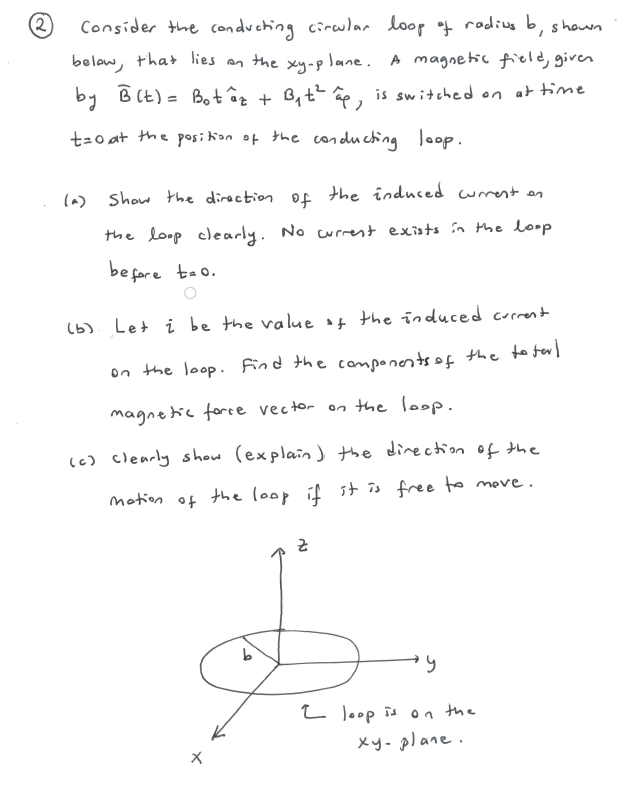 ② Consider the conducting circular loop of radius b, shown
below, that lies on the xy-plane. A magnetic field, given
by B̄(t) = B₀t âz + B₁t² âρ, is switched on at time
t=0 at the position of the conducting loop.
(a) Show the direction of the induced current on
the loop clearly. No current exists in the loop
before t=0.
(b) Let i be the value of the induced current
on the loop. Find the components of the total
magnetic force vector on the loop.
(c) Clearly show (explain) the direction of the
motion of the loop if it is free to move.
z
b
y
loop is on the
xy-plane.
x